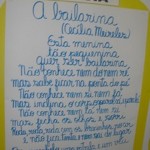 A bailarina
(Cecília Meireles)
Esta menina
tão pequenina
quer ser bailarina
Não conhece nem dó nem ré
mas sabe ficar na ponta do pé
Não conhece nem mi nem fá
mas inclina o corpo para cá e para lá
Não conhece nem lá nem si
mas fecha os olhos e sorri
Roda, roda, roda com os bracinhos no ar
e não fica tonta nem sai do lugar